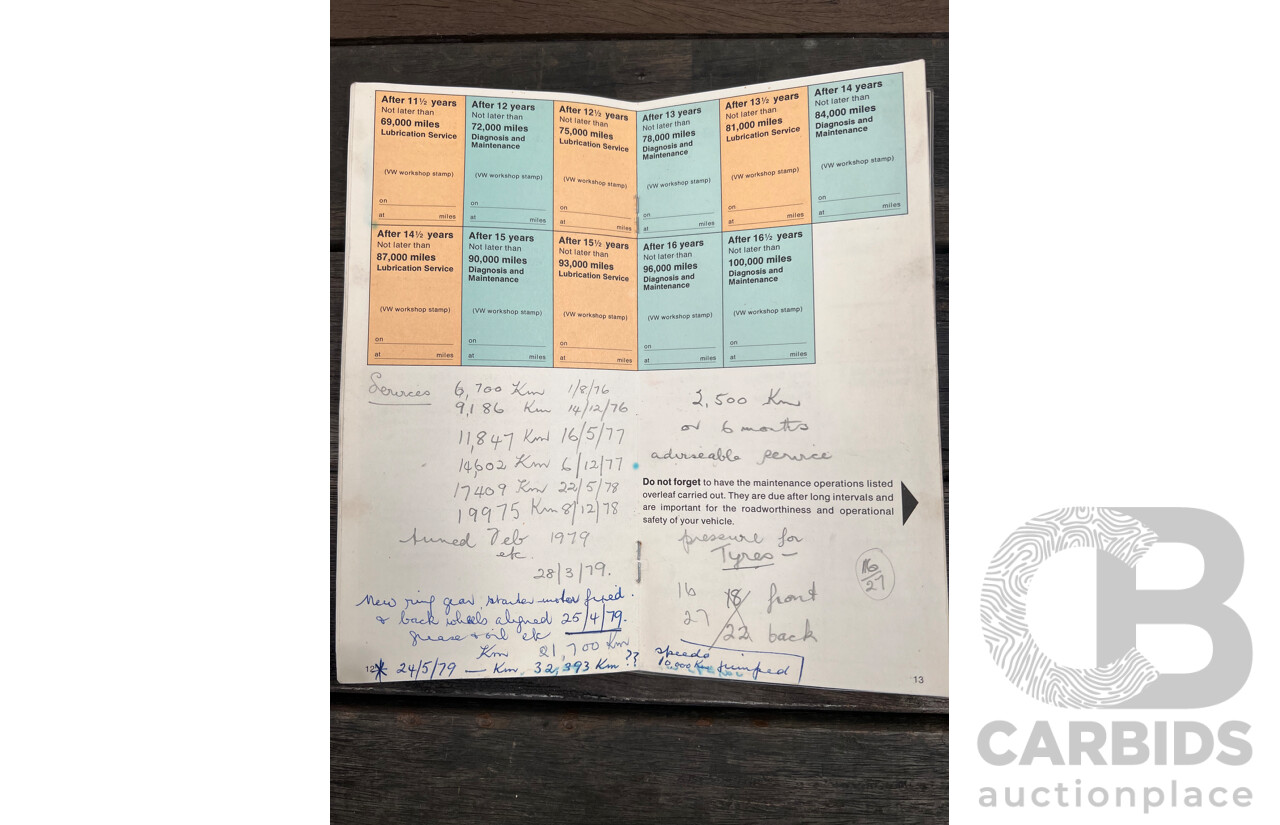 After 11½ years
Not later than
69,000 miles
Lubrication Service
(VW workshop stamp)
on
at miles
After 12 years
Not later than
72,000 miles
Diagnosis and
Maintenance
(VW workshop stamp)
on
at miles
After 12½ years
Not later than
75,000 miles
Lubrication Service
(VW workshop stamp)
on
at miles
After 13 years
Not later than
78,000 miles
Diagnosis and
Maintenance
(VW workshop stamp)
on
at miles
After 13½ years
Not later than
81,000 miles
Lubrication Service
(VW workshop stamp)
on
at miles
After 14 years
Not later than
84,000 miles
Diagnosis and
Maintenance
(VW workshop stamp)
on
at miles
After 14½ years
Not later than
87,000 miles
Lubrication Service
(VW workshop stamp)
on
at miles
After 15 years
Not later than
90,000 miles
Diagnosis and
Maintenance
(VW workshop stamp)
on
at miles
After 15½ years
Not later than
93,000 miles
Lubrication Service
(VW workshop stamp)
on
at miles
After 16 years
Not later than
96,000 miles
Diagnosis and
Maintenance
(VW workshop stamp)
on
at miles
After 16½ years
Not later than
100,000 miles
Diagnosis and
Maintenance
(VW workshop stamp)
on
at miles
Services 6,700 Km 1/8/76
9,186 Km 14/12/76
11,847 Km 16/5/77
14,602 Km 6/12/77
17409 Km 22/5/78
19975 Km 8/12/78
tuned Feb 1979
etc.
28/3/79.
New ring gear, starter motor fixed.
& back wheels aligned 25/4/79.
grease & oil etc
Km 21,700 Km
12 * 24/5/79 — Km 32,393 Km ??
2,500 Km
or 6 months
adviseable service
Do not forget to have the maintenance operations listed
overleaf carried out. They are due after long intervals and
are important for the roadworthiness and operational
safety of your vehicle.
pressure for
Tyres —
16
27
16 18 front
27 22 back
speedo
10,000 Km jumped
13
CB
CARBIDS
auctionplace